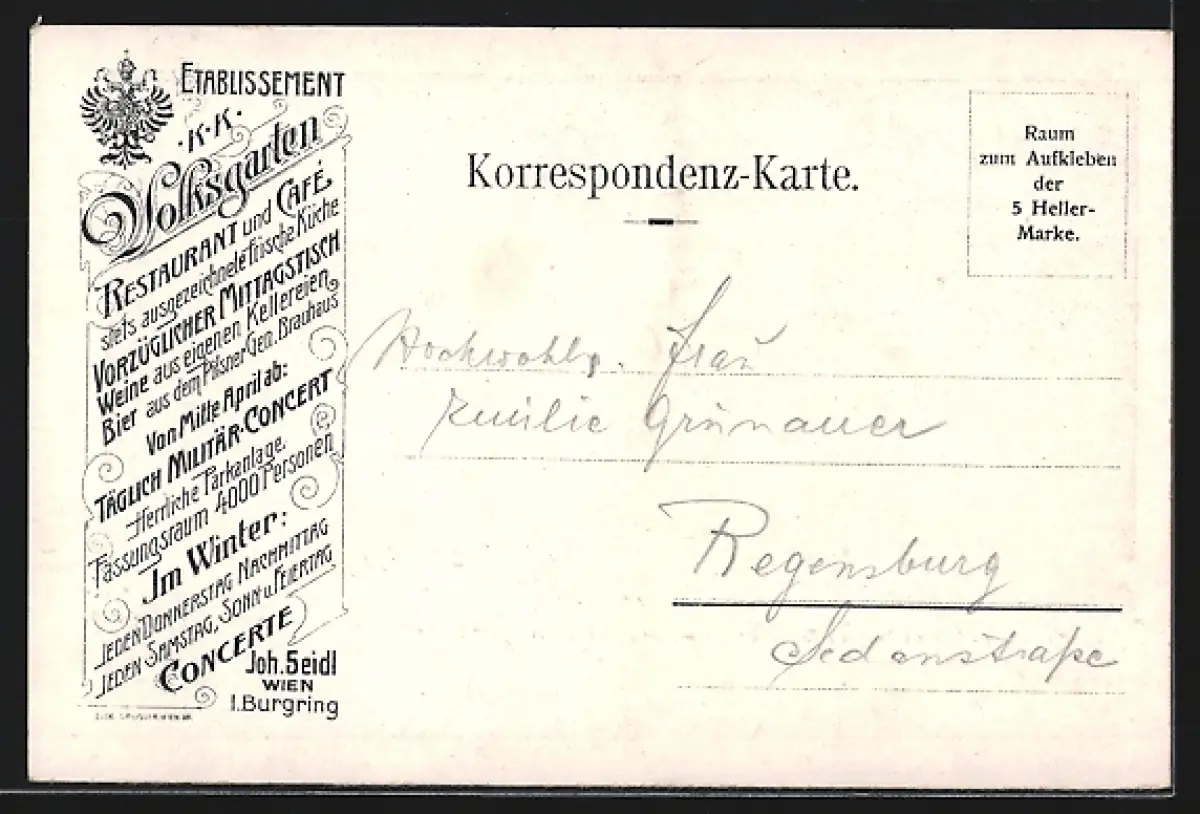 ETABLISSEMENT
K.K.
Volksgarten
RESTAURANT und CAFÉ
stets ausgezeichnete frische Küche
VORZÜGLICHER MITTAGSTISCH
Weine aus eigenen Kellereien
Bier aus dem Pilsner Gen. Brauhaus
Von Mitte April ab:
TÄGLICH MILITÄR-CONCERT
Herrliche Parkanlage.
Fassungsraum 4000 Personen
Im Winter:
JEDEN DONNERSTAG NACHMITTAG
JEDEN SAMSTAG, SONN u. FEIERTAG
CONCERTE
Joh. Seidl
WIEN
I. Burgring
Korrespondenz-Karte.
Raum
zum Aufkleben
der
5 Heller-
Marke.
Hochwohlg. Frau
Emilie Grünauer
Regensburg
Sedanstraße